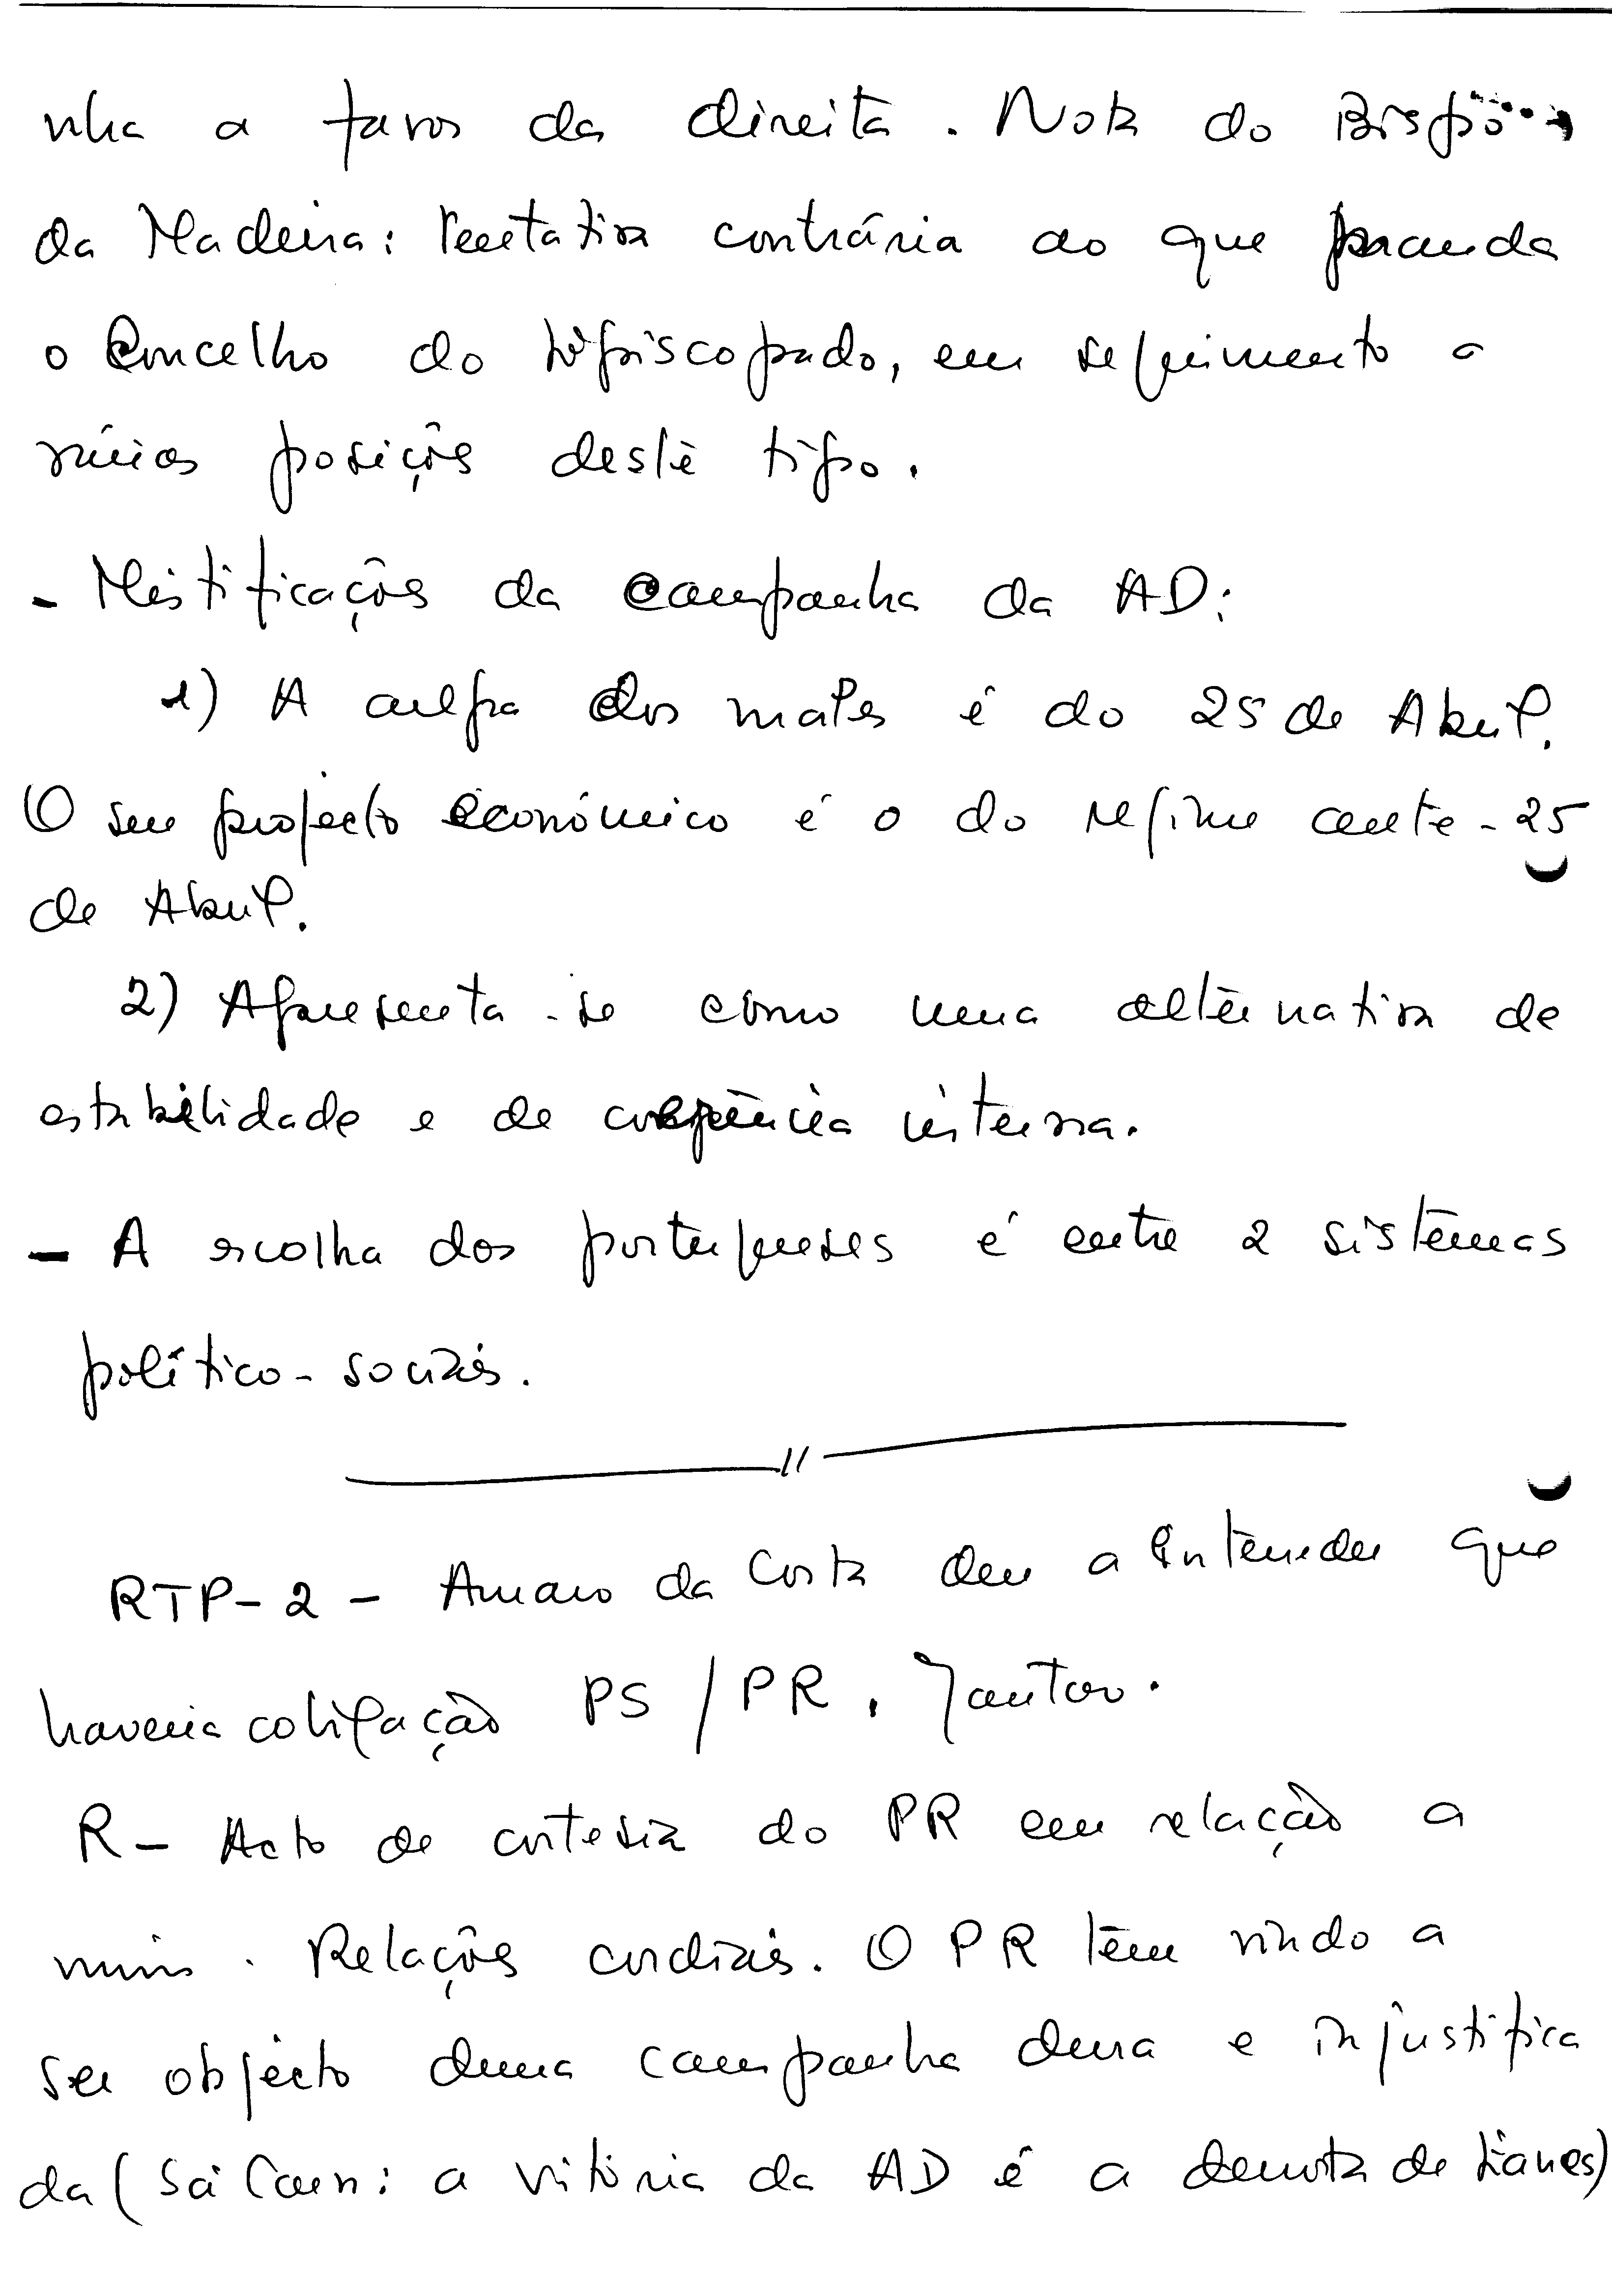 nha a favor da direita. Nota do Bispo
da Madeira: tentativa contrária ao que manda
o Concelho do Episcopado, em seguimento a
várias posições deste tipo.
- Mistificações da campanha da AD:
1) A culpa dos males é do 25 de Abril.
O seu projecto económico é o do regime ante-25
de Abril.
2) Apresenta-se como uma alternativa de
estabilidade e de coerência interna.
- A escolha dos portugueses é entre 2 sistemas
político-sociais.
//
RTP-2 - Amaro da Costa deu a entender que
haveria coligação PS/PR. Jantar.
R- Acto de cortesia do PR em relação a
mim. Relações cordiais. O PR tem vindo a
ser objecto duma campanha dura e injustifica
da (Sá Carn: a vitória da AD é a derrota de Eanes)